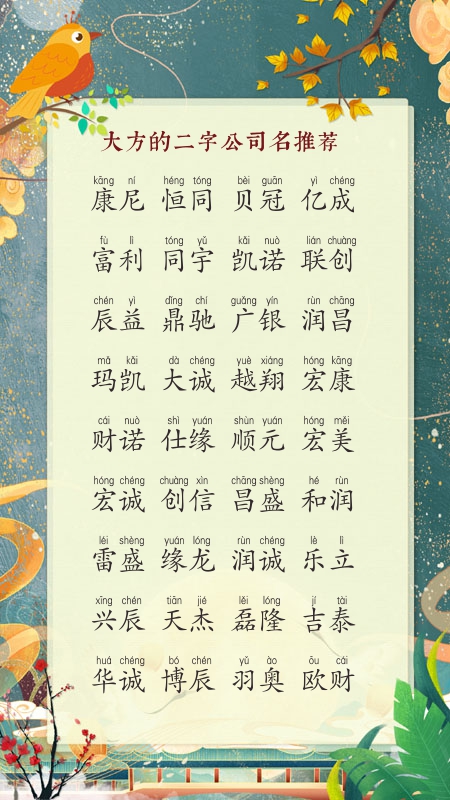 大方的二字公司名推荐
kāng ní héng tóng bèi guān yì chéng
康尼 恒同 贝冠 亿成
fù lì tóng yǔ kǎi nuò lián chuàng
富利 同宇 凯诺 联创
chén yì dǐng chí guǎng yín rùn chāng
辰益 鼎驰 广银 润昌
mǎ kǎi dà chéng yuè xiáng hóng kāng
玛凯 大诚 越翔 宏康
cái nuò shì yuán shùn yuán hóng měi
财诺 仕缘 顺元 宏美
hóng chéng chuàng xìn chāng shèng hé rùn
宏诚 创信 昌盛 和润
léi shèng yuán lóng rùn chéng lè lì
雷盛 缘龙 润诚 乐立
xīng chén tiān jié lěi lóng jí tài
兴辰 天杰 磊隆 吉泰
huá chéng bó chén yǔ ào ōu cái
华诚 博辰 羽奥 欧财